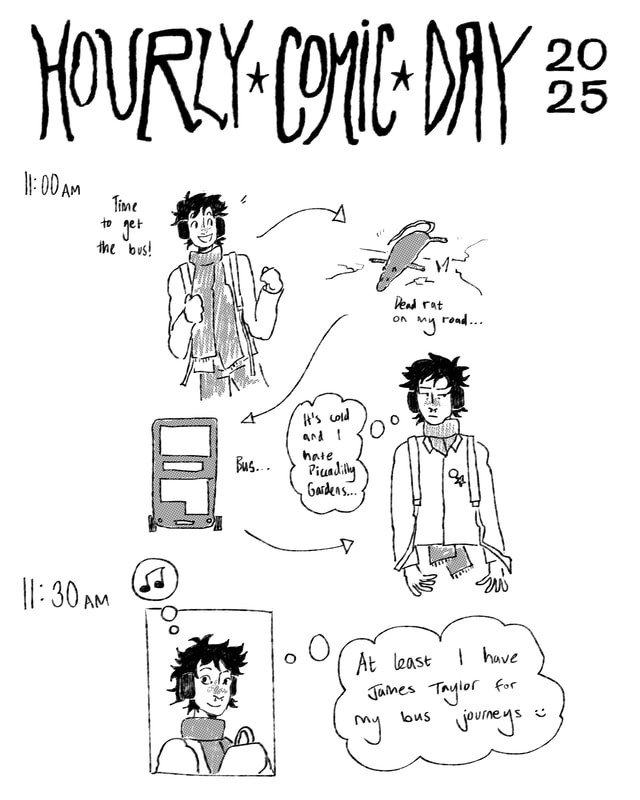 HOURLY★COMIC★DAY
20
25
11:00 AM
Time
to get
the bus!
Dead rat
on my road...
Bus...
It's cold
and I
hate
Piccadilly
Gardens...
11:30 AM
At least I have
James Taylor for
my bus journeys :)